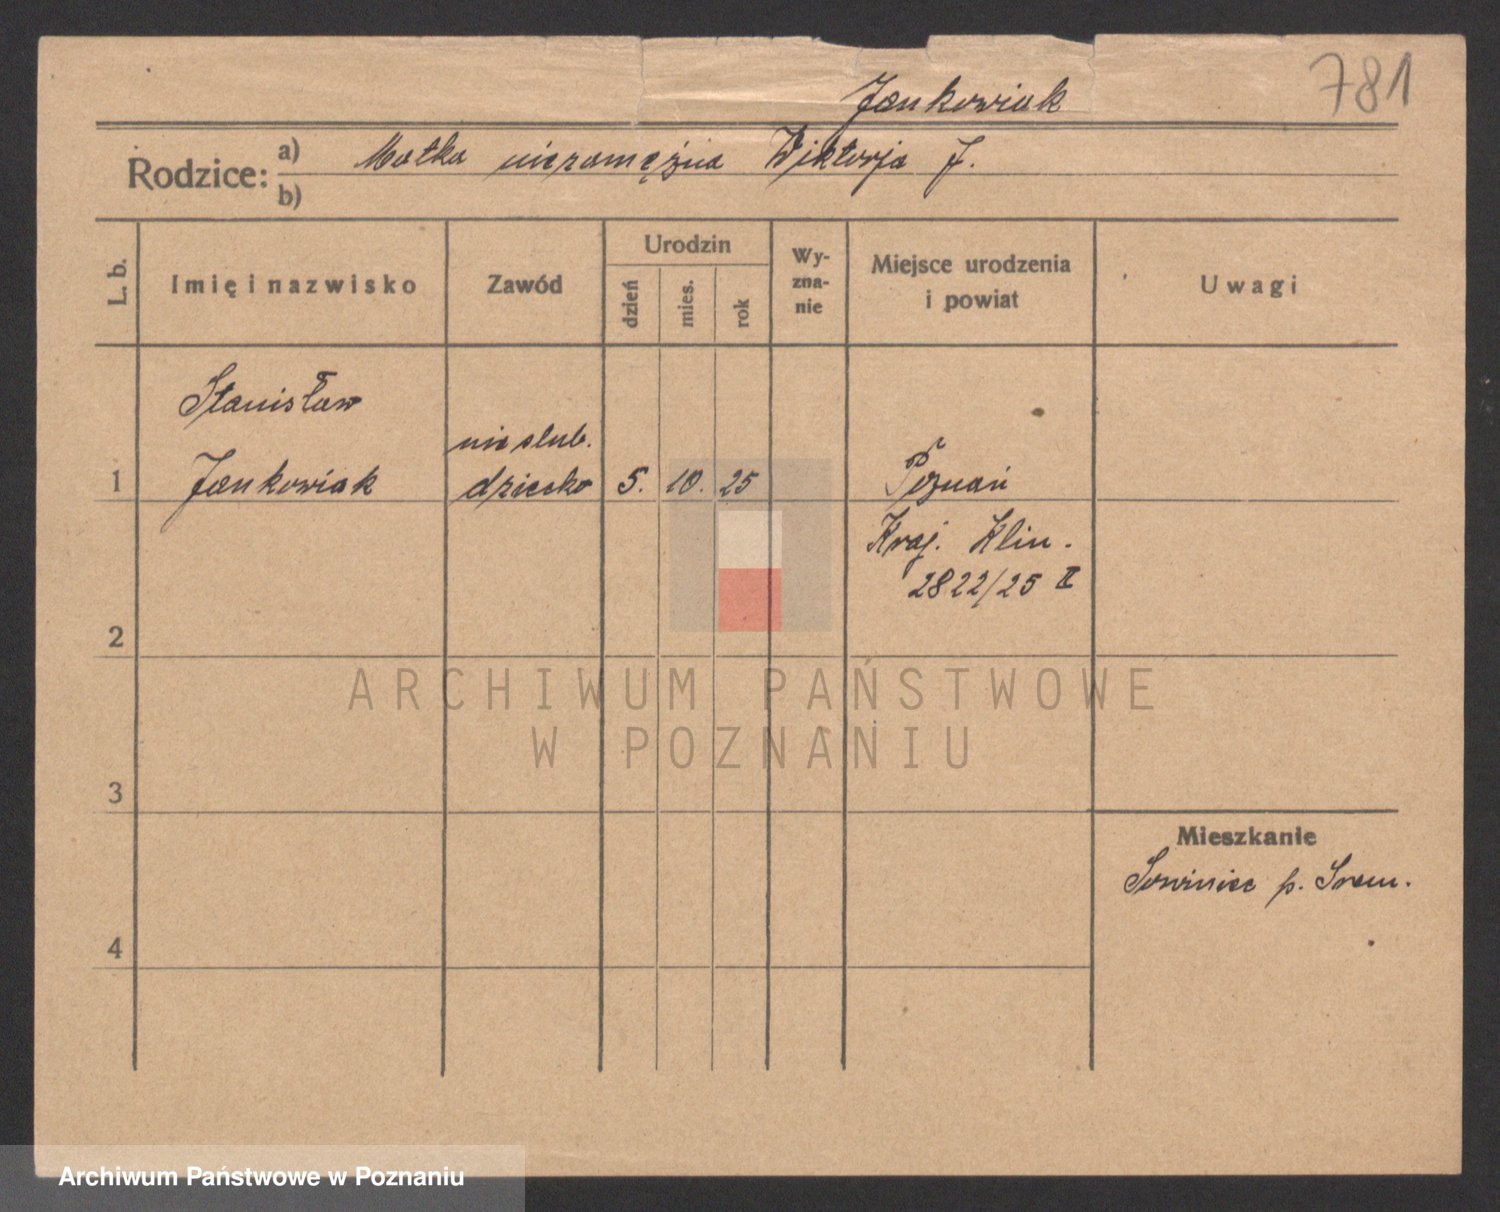 781
Jankowiak
Rodzice: a) Matka niezamężna Wiktorja J.
b)
L. b.
Imię i nazwisko
Zawód
Urodzin
dzień
mies.
rok
Wy-
zna-
nie
Miejsce urodzenia
i powiat
Uwagi
Stanisław
nieslub.
1 Jankowiak dziecko 5. 10. 25 Poznań
Kraj. Klin.
2822/25 II
2
ARCHIWUM PAŃSTWOWE
W POZNANIU
3
Mieszkanie
Sowiniec p. Srem.
4
Archiwum Państwowe w Poznaniu